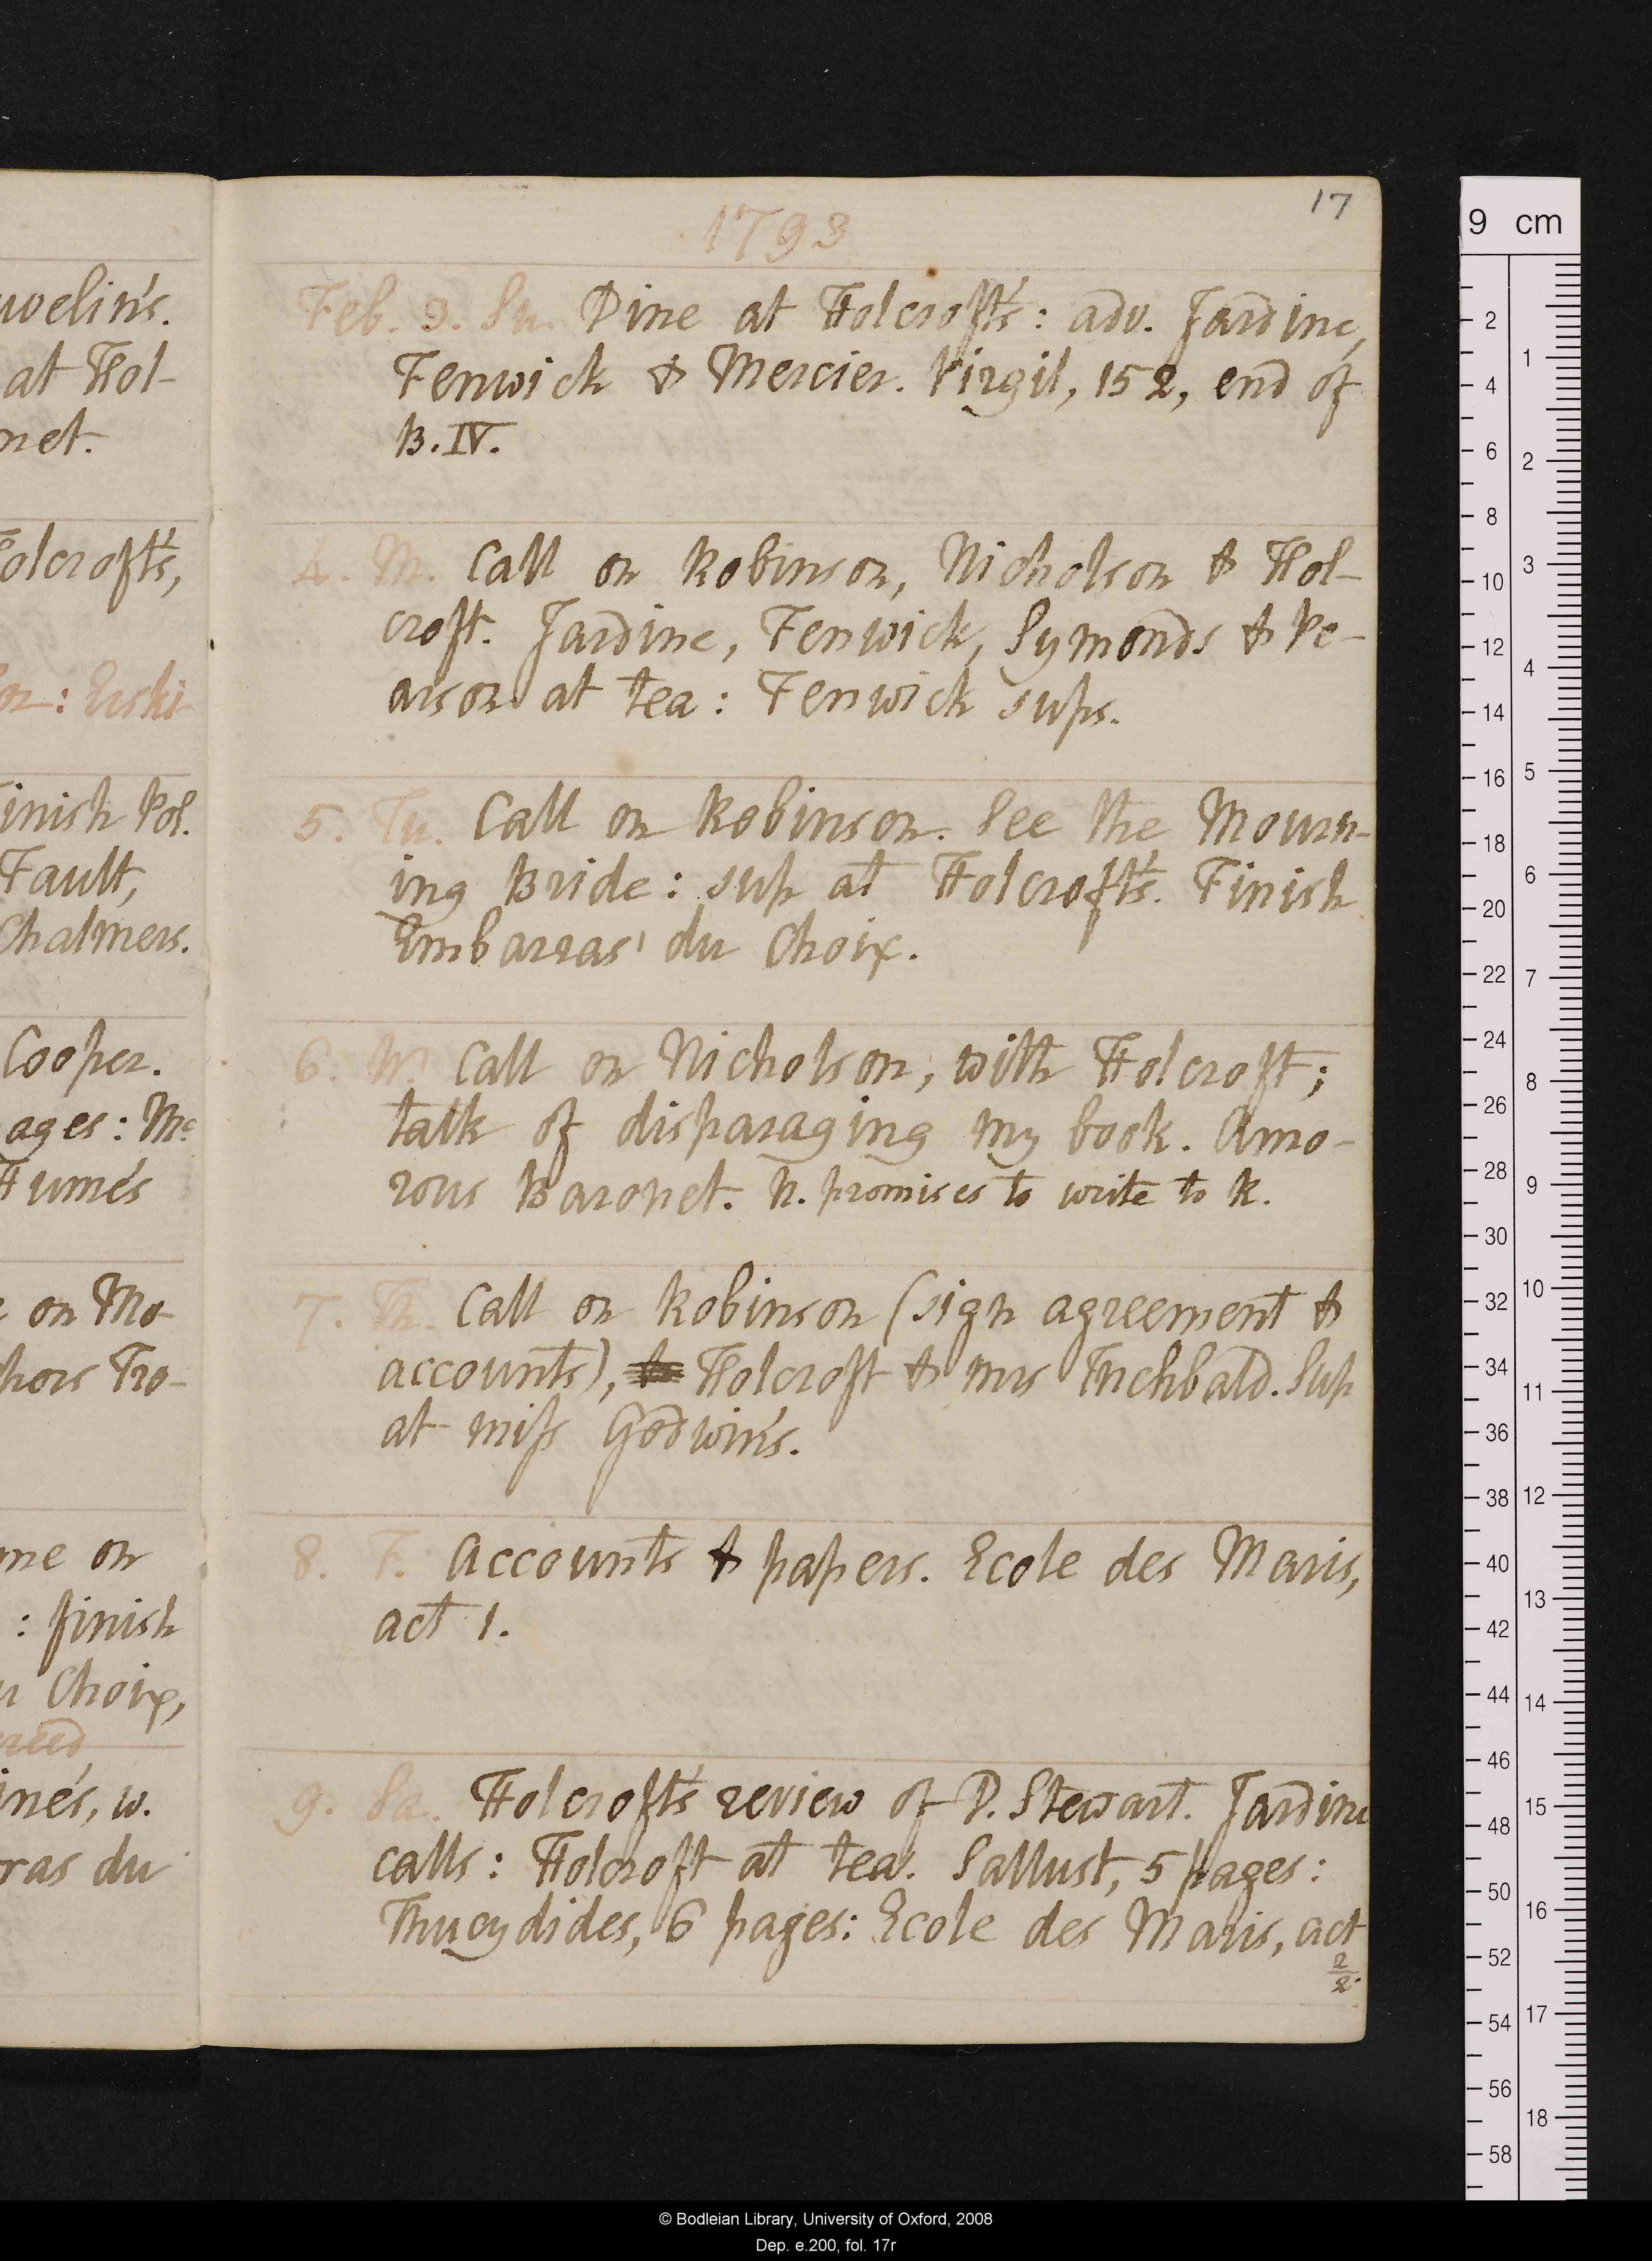 17
1793
Feb. 3. Su. Dine at Holcroft's: adv. Jardine,
Fenwick & Mercier. Virgil, 152, end of
B. IV.
4. M. Call on Robinson, Nicholson & Hol-
croft. Jardine, Fenwick, Symonds & Pe-
arson at tea: Fenwick sups.
5. Tu. Call on Robinson. See the Mourn-
ing Bride: sup at Holcroft's. Finish
Embarras du Choix.
6. W. Call on Nicholson, with Holcroft;
talk of disparaging my book. Amo-
rous Baronet. N. promises to write to K.
7. Th. Call on Robinson (sign agreement &
accounts), Holcroft & mrs Inchbald. Sup
at miss Godwin's.
8. F. Accounts & papers. Ecole des Maris,
act 1.
9. Sa. Holcroft's review of D. Stewart. Jardine
calls: Holcroft at tea. Sallust, 5 pages:
Thucydides, 6 pages: Ecole des Maris, act
2/2.
uvelin's.
at Hol-
net.
Holcroft's,
on: Erski
Finish Pol.
Fault,
Chalmers.
Cooper.
ages: Mc
Hume's
on Mo-
hors Tro-
me on
: finish
u Choix,
ine's, w.
ras du
9 cm
2
4
6
8
10
12
14
16
18
20
22
24
26
28
30
32
34
36
38
40
42
44
46
48
50
52
54
56
58
1
2
3
4
5
6
7
8
9
10
11
12
13
14
15
16
17
18
© Bodleian Library, University of Oxford, 2008
Dep. e.200, fol. 17r